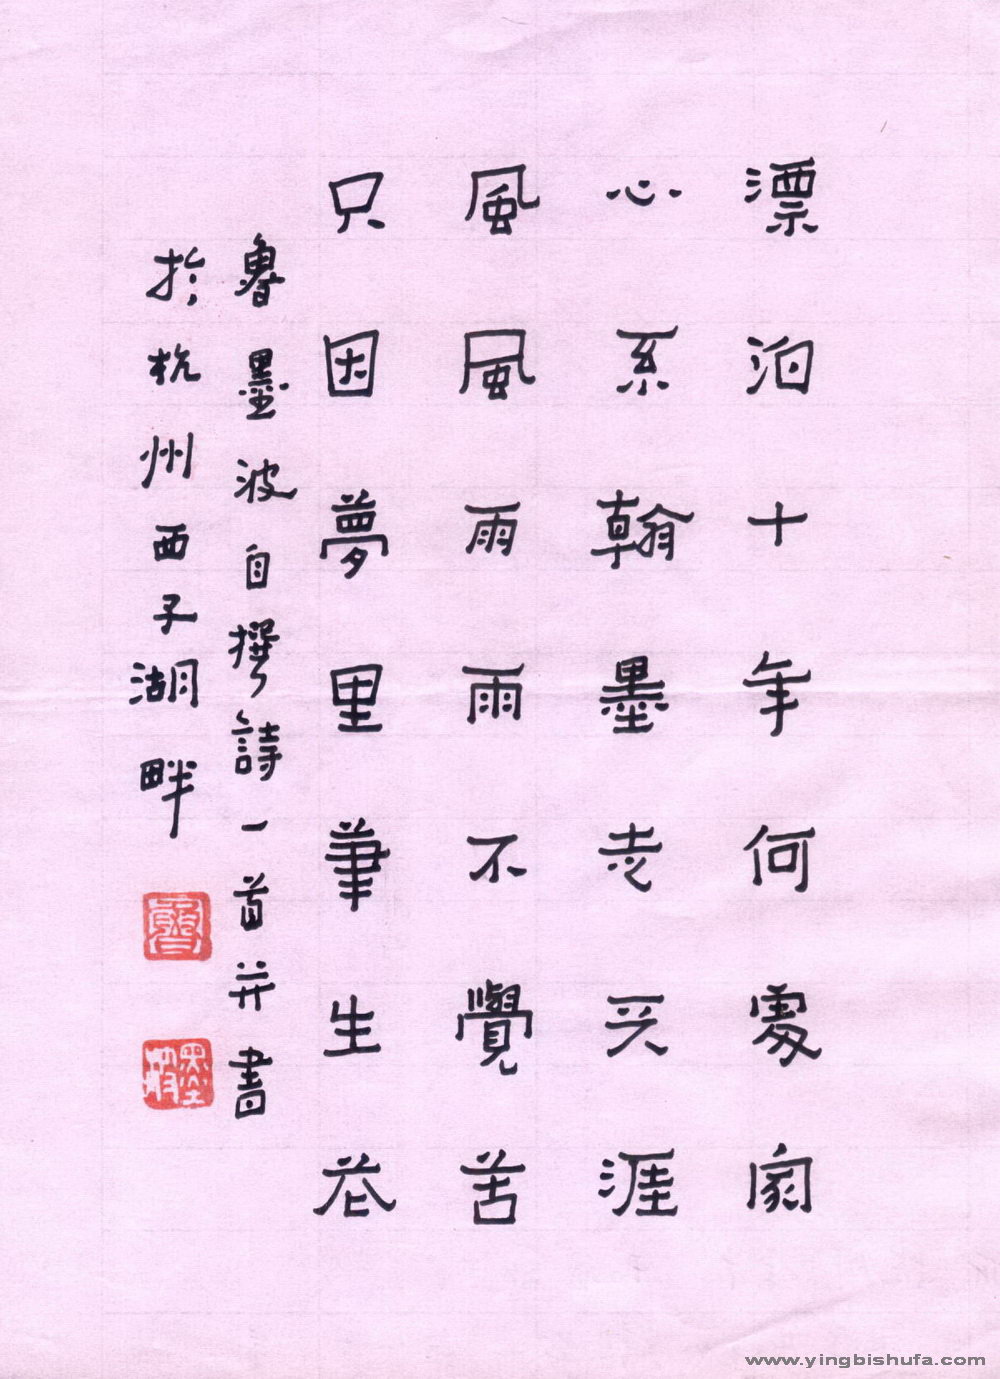 漂泊十年何處家
心系翰墨走天涯
風風雨雨不覺苦
只因夢里筆生花
魯墨波自撰詩一首并書
於杭州西子湖畔
魯
墨波
www.yingbishufa.com